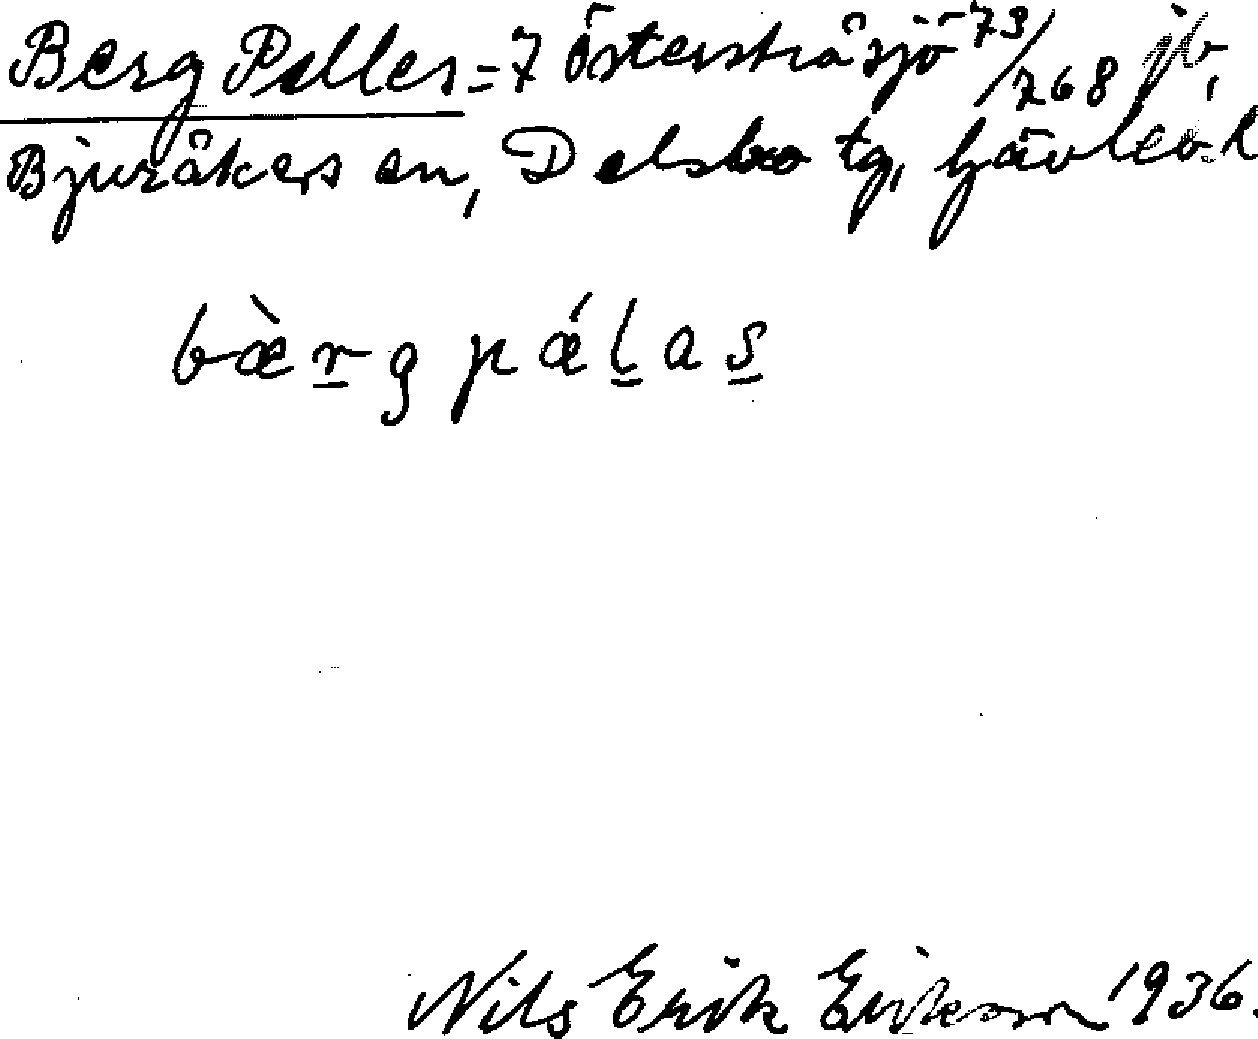 Berg Pellers = 7 Österstråsjö 73/768 jb,
Bjuråkers sn, Delsbo tg, Gävleb. l
bæ̀r̲g pǽl̲as̲
Nils Erik Eriksson 1936.